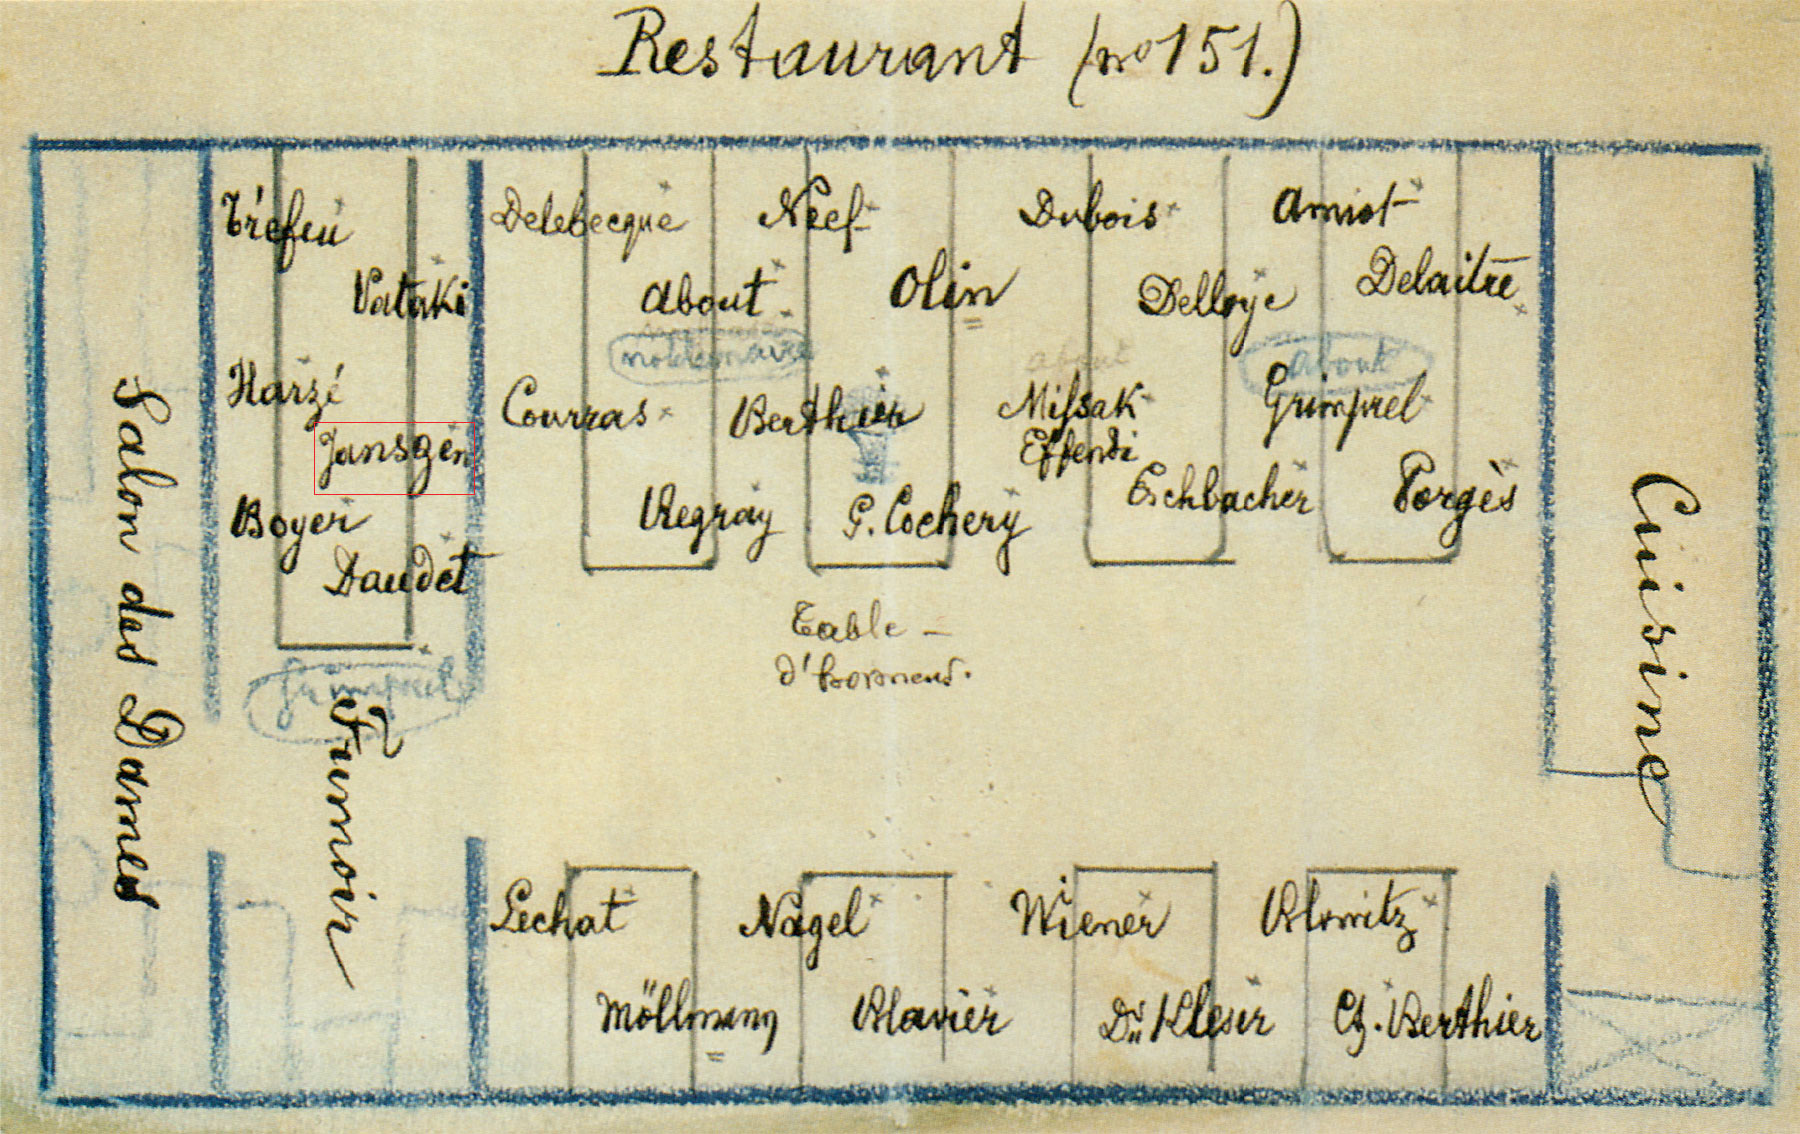 Restaurant (no 151.)
Tréfeu
Delebecque
Neef
Dubois
Amiot
Vataki
About
Olin
Delloye
Delaitre
about
About
Harzé
Courras
Berthier
Missak
Grimprel
Janszen
Effendi
Boyer
Regray
G. Cochery
Eschbacher
Porgès
Daudet
Table
d'honneur.
Grimprel
Salon des Dames
Fumoir
Cuisine
Lechat
Nagel
Wiener
Blowitz
Möllmann
Blavier
Dr Kleser
Ch. Berthier